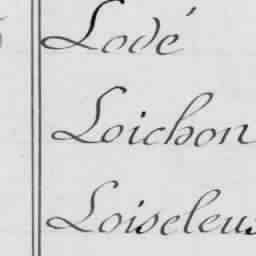 Lodé
Loichon
Loiseleus